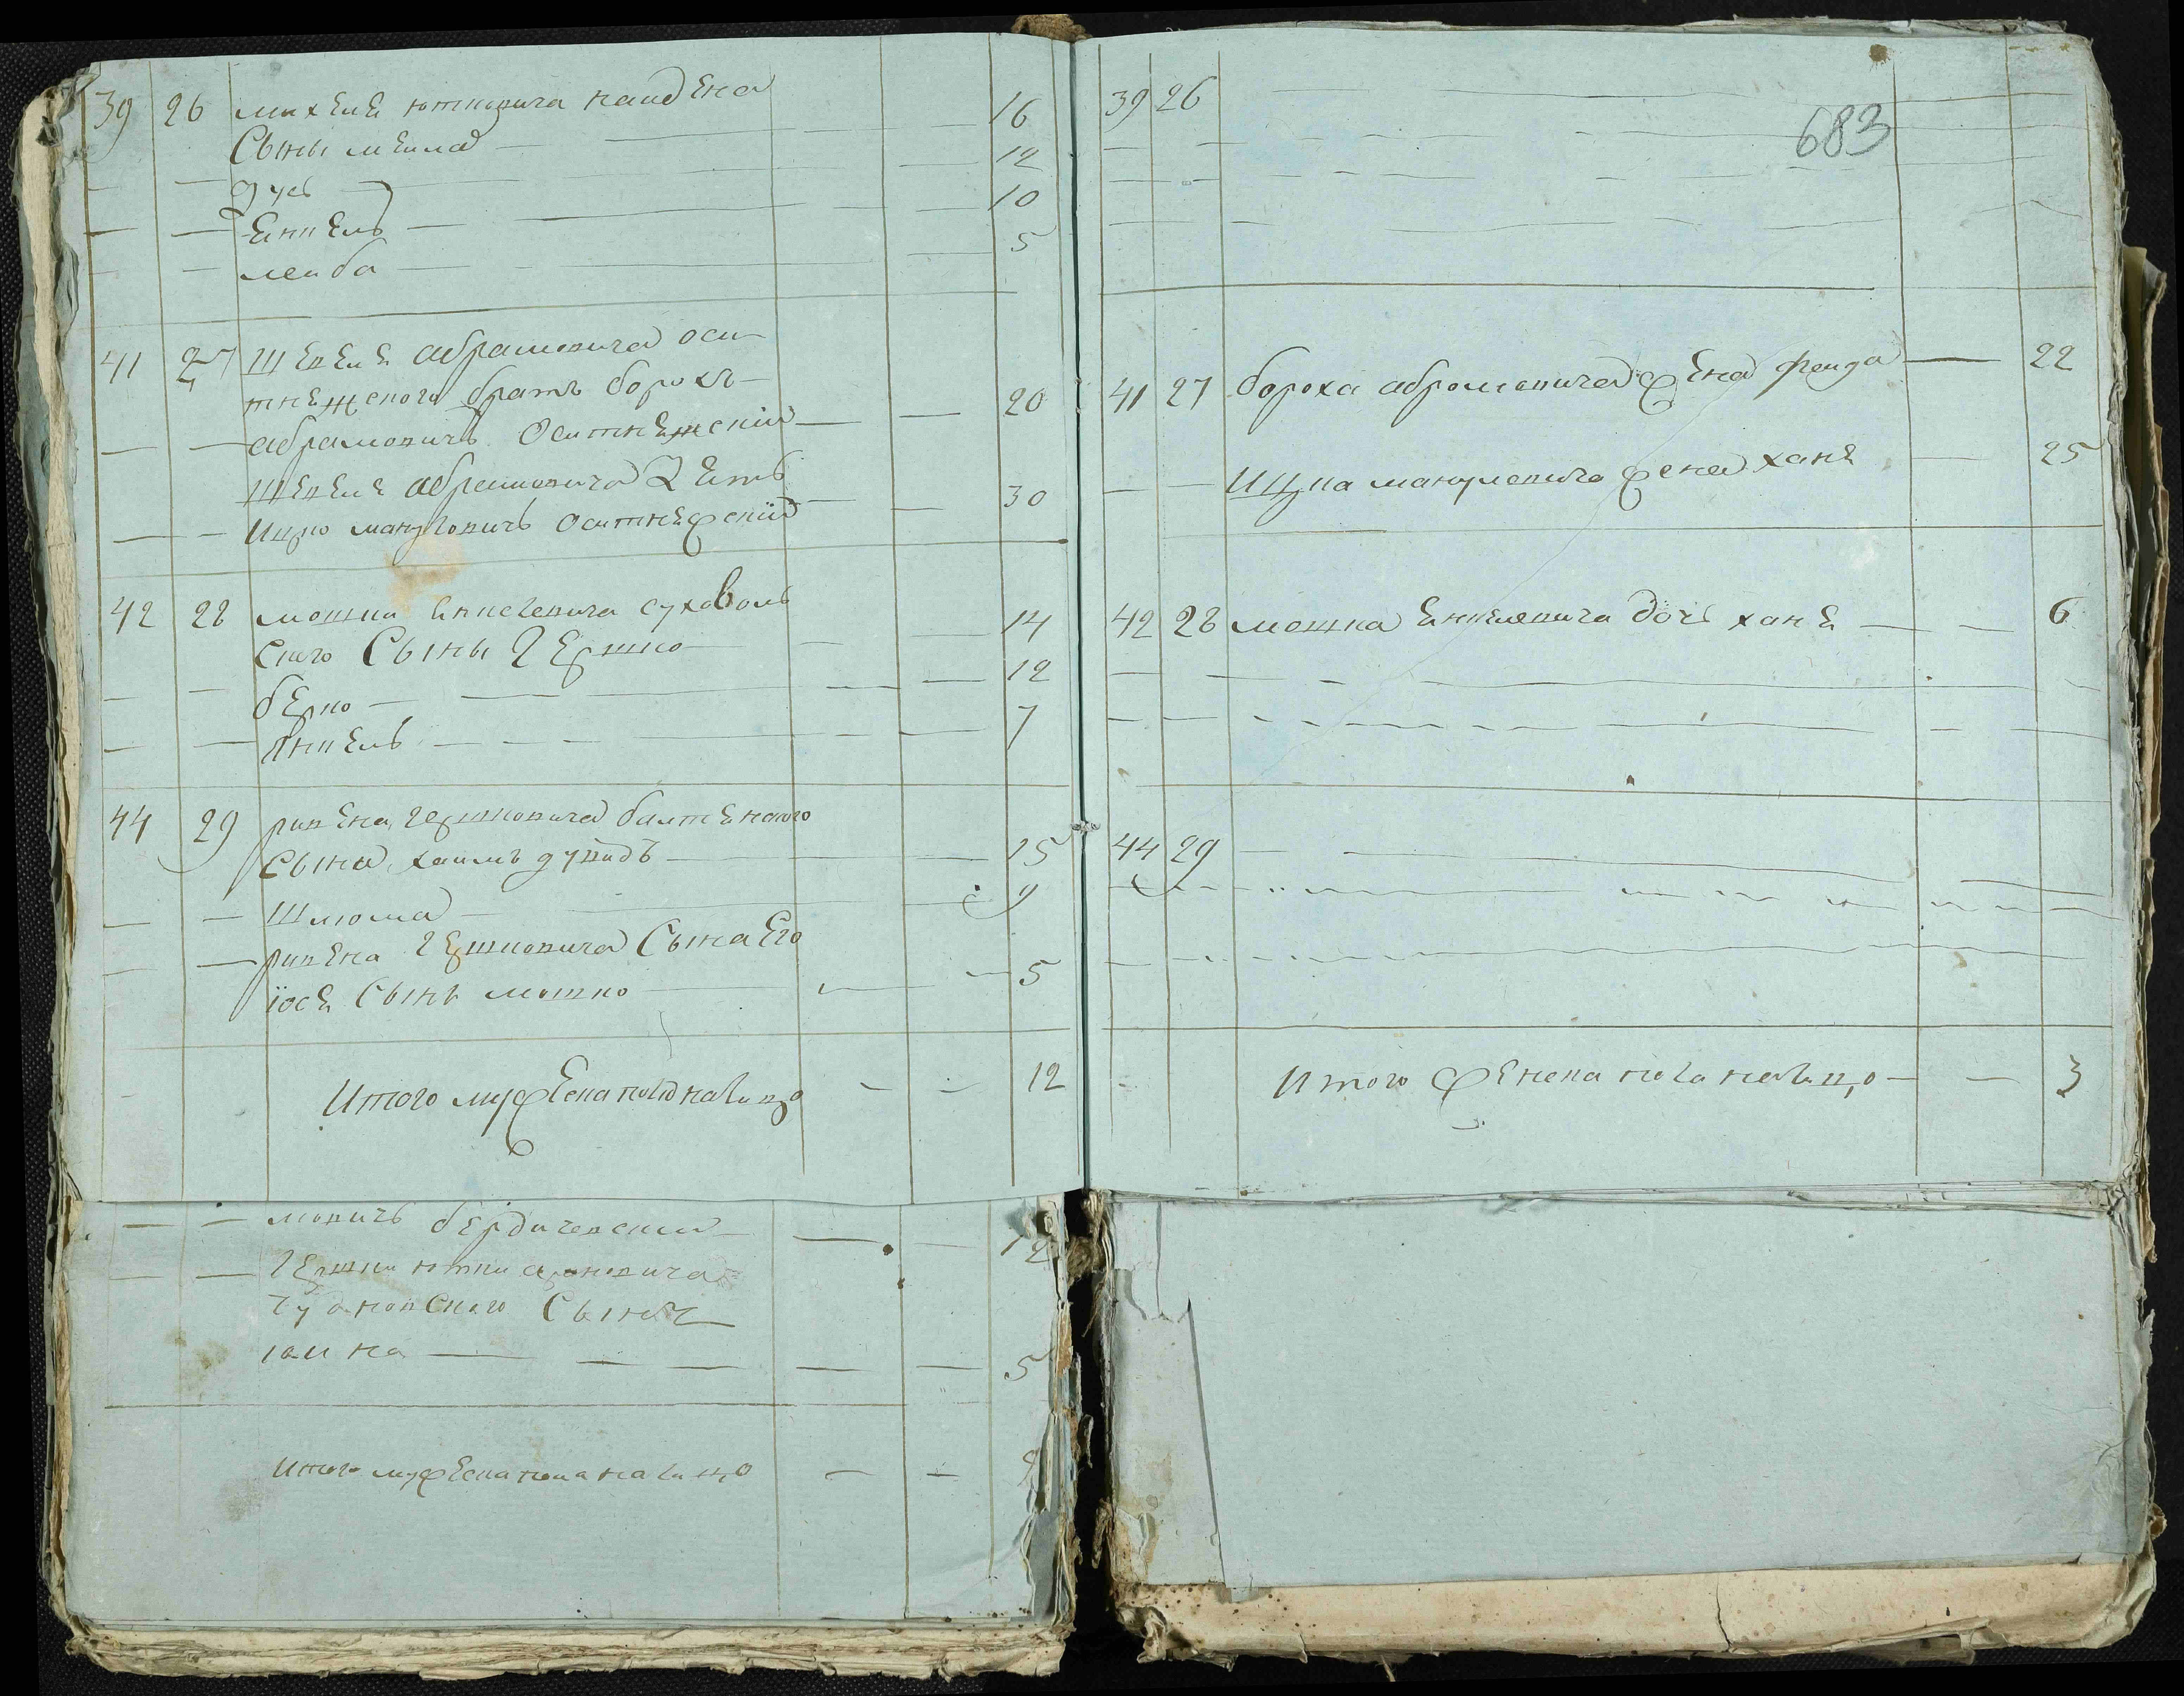 39 26 михеля ютковича кандела
Сыны мейлах 16
дусь 12
Енкель 10
лейба 5
41 27 Шевеля абрамовича оси
тнежского братъ борохъ
абрамовичъ Оситнежский 20
Шевеля абрамовича Зеть
Ицко манусовичъ Оситнежский 30
42 28 мошки Енкелевича суховоль
ского Сыны Гершко 14
берко 12
Янкель 7
44 29 рувена гершковича балтенского
Сына хаимъ дувидъ 15
Шлиома 9
рувена Гершковича Сына Его
iосея Сынъ мошко 5
Итого мужеска пола налицо 12
мовичъ бердичевский 12
Гершки ютки ароновича
Чудновского Сынъ
5
Итого мужеска пола налицо
683
39 26
41 27 бороха абрамовича жена фейга 22
Ицка манусовича жена хане 25
42 28 мошка Енкелевича дочь хане 6
44 29
Итого женска пола налицо 3